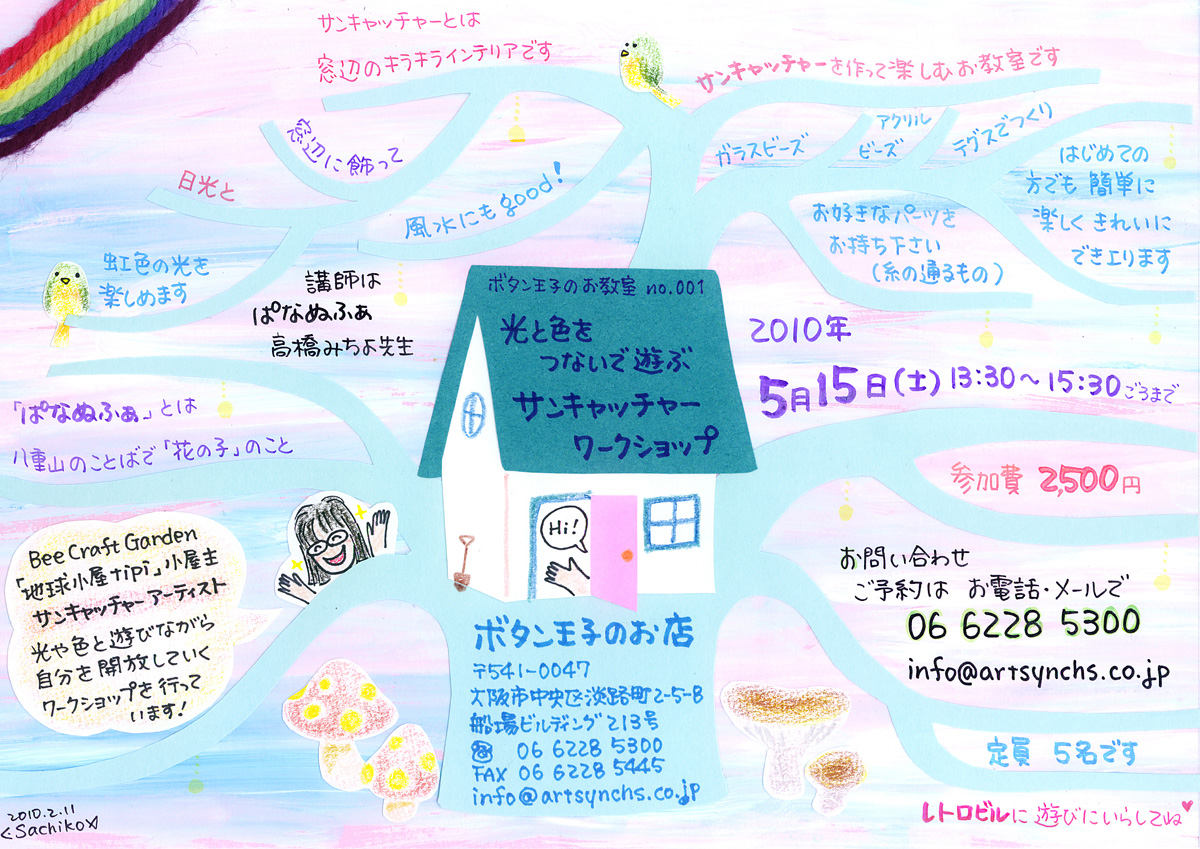 サンキャッチャーとは
窓辺のキラキラインテリアです
サンキャッチャーを作って楽しむお教室です
窓辺に飾って
日光と
風水にもgood!
虹色の光を
楽しめます
ガラスビーズ
アクリル
ビーズ
テグスでつくり
はじめての
方でも簡単に
楽しくきれいに
でき上ります
お好きなパーツを
お持ち下さい
(糸の通るもの)
講師は
ぱなぬふぁ
高橋みちよ先生
ボタン王子のお教室 no.001
光と色を
つないで遊ぶ
サンキャッチャー
ワークショップ
2010年
5月15日(土) 13:30~15:30ごろまで
「ぱなぬふぁ」とは
八重山のことばで「花の子」のこと
参加費 2,500円
Bee Craft Garden
「地球小屋tipi」小屋主
サンキャッチャーアーティスト
光や色と遊びながら
自分を開放していく
ワークショップを行って
います!
Hi!
お問い合わせ
ご予約は お電話・メールで
06 6228 5300
info@artsynchs.co.jp
ボタン王子のお店
〒541-0047
大阪市中央区淡路町2-5-8
船場ビルディング213号
☎ 06 6228 5300
FAX 06 6228 5445
info@artsynchs.co.jp
定員 5名です
レトロビルに遊びにいらしてね♥
2010.2.11
<Sachiko>